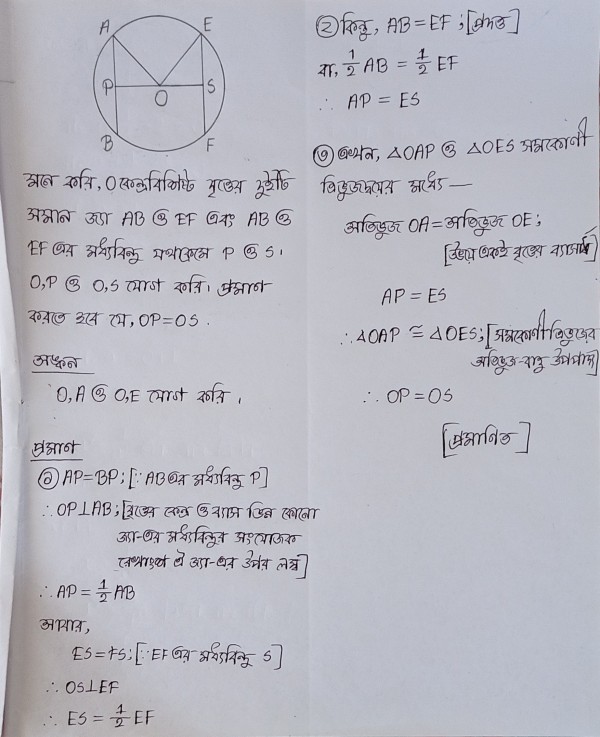 A
E
P
S
O
B
F
মনে করি, O কেন্দ্রবিশিষ্ট বৃত্তের দুইটি
সমান জ্যা AB ও EF এবং AB ও
EF এর মধ্যবিন্দু যথাক্রমে P ও S।
O,P ও O,S যোগ করি। প্রমাণ
করতে হবে যে, OP=OS.
অঙ্কন
O,A ও O,E যোগ করি।
প্রমাণ
① AP=BP; [∵AB এর মধ্যবিন্দু P]
∴ OP⊥AB; [বৃত্তের কেন্দ্র ও ব্যাস ভিন্ন কোনো
জ্যা-এর মধ্যবিন্দুর সংযোজক
রেখাংশ ঐ জ্যা-এর উপর লম্ব]
∴ AP = 1/2 AB
আবার,
ES=FS; [∵EF এর মধ্যবিন্দু S]
∴ OS⊥EF
∴ ES = 1/2 EF
② কিন্তু, AB=EF; [প্রদত্ত]
বা, 1/2 AB = 1/2 EF
∴ AP=ES
③ এখন, △OAP ও △OES সমকোণী
ত্রিভুজদ্বয়ের মধ্যে—
অতিভুজ OA=অতিভুজ OE;
[উভয়ে একই বৃত্তের ব্যাসার্ধ]
AP=ES
∴ △OAP ≅ △OES; [সমকোণী ত্রিভুজের
অতিভুজ-বাহু উপপাদ্য]
∴ OP=OS
[প্রমাণিত]